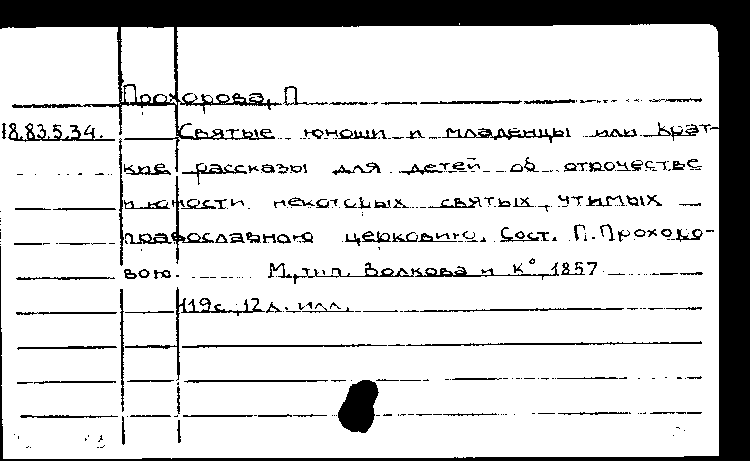 Прохорова, П
18.83.5.34. Святые юноши и младенцы или крат-
кие рассказы для детей об отрочестве
и юности некоторых святых, чтимых
православною церковию. Сост. П. Прохоро-
вою. М., тип. Волкова и К°, 1857
119с., 12 л. илл.